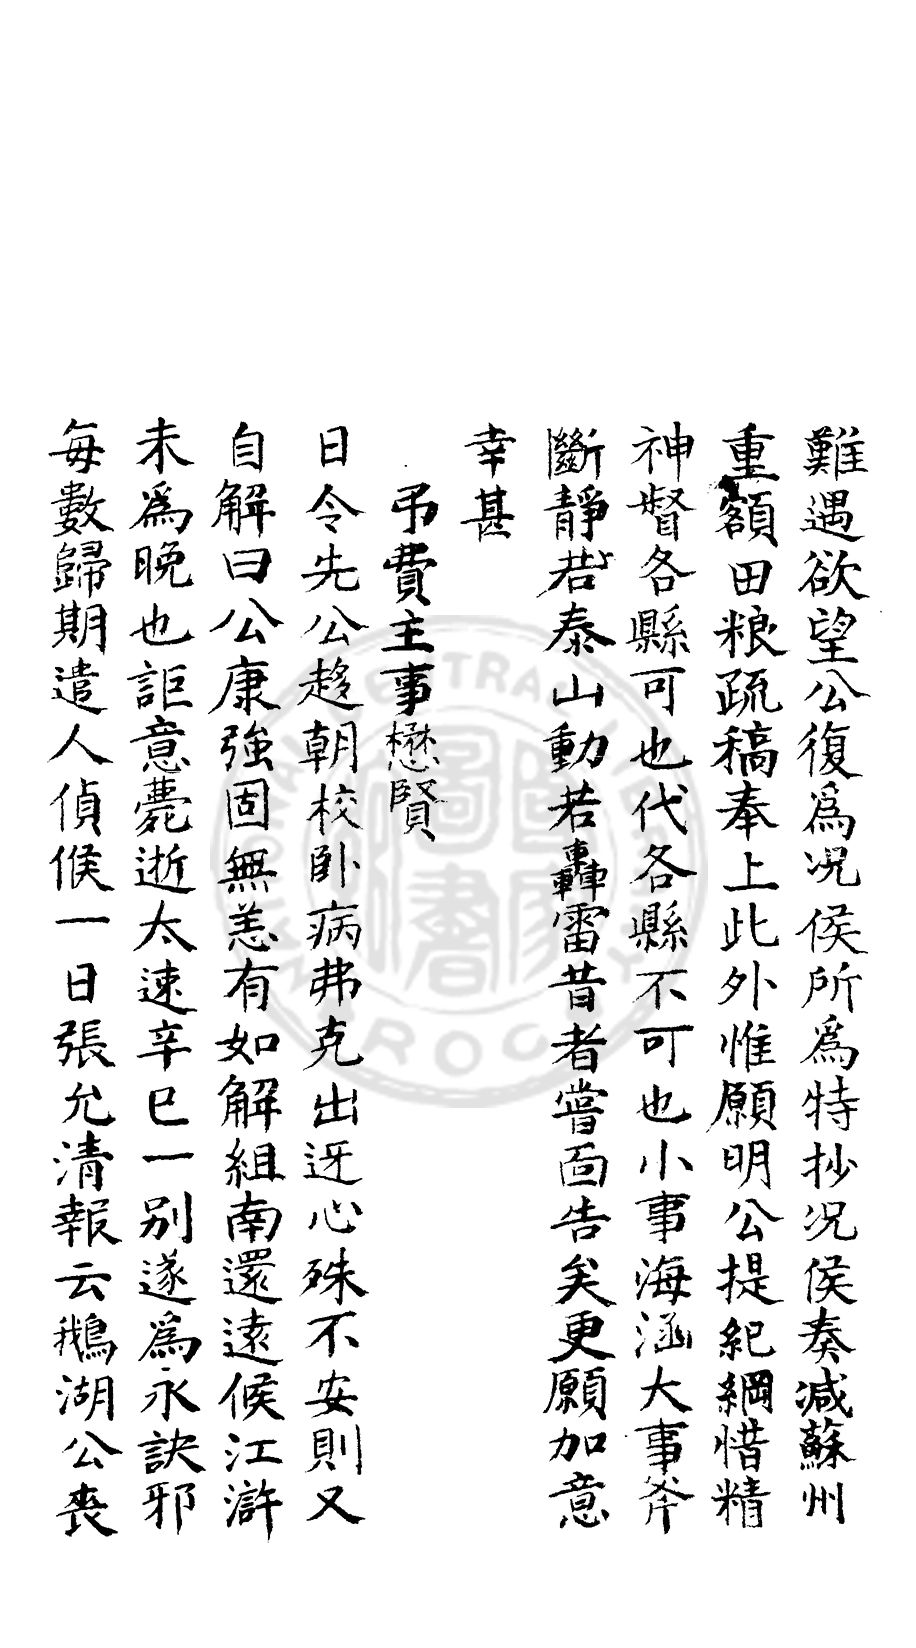 難遇欲望公復爲况侯所爲特抄况侯奏减蘇州
重額田粮疏稿奉上此外惟願明公提紀綱惜精
神督各縣可也代各縣不可也小事海涵大事斧
斷靜若泰山動若轟雷昔者嘗面告矣更願加意
幸甚
弔費主事懋賢
日令先公趍朝校卧病弗克出迓心殊不安則又
自解曰公康強固無恙有如解組南還遠候江滸
未爲晚也詎意薨逝太速辛巳一别遂爲永訣邪
每數歸期遣人偵候一日張允清報云鵝湖公喪